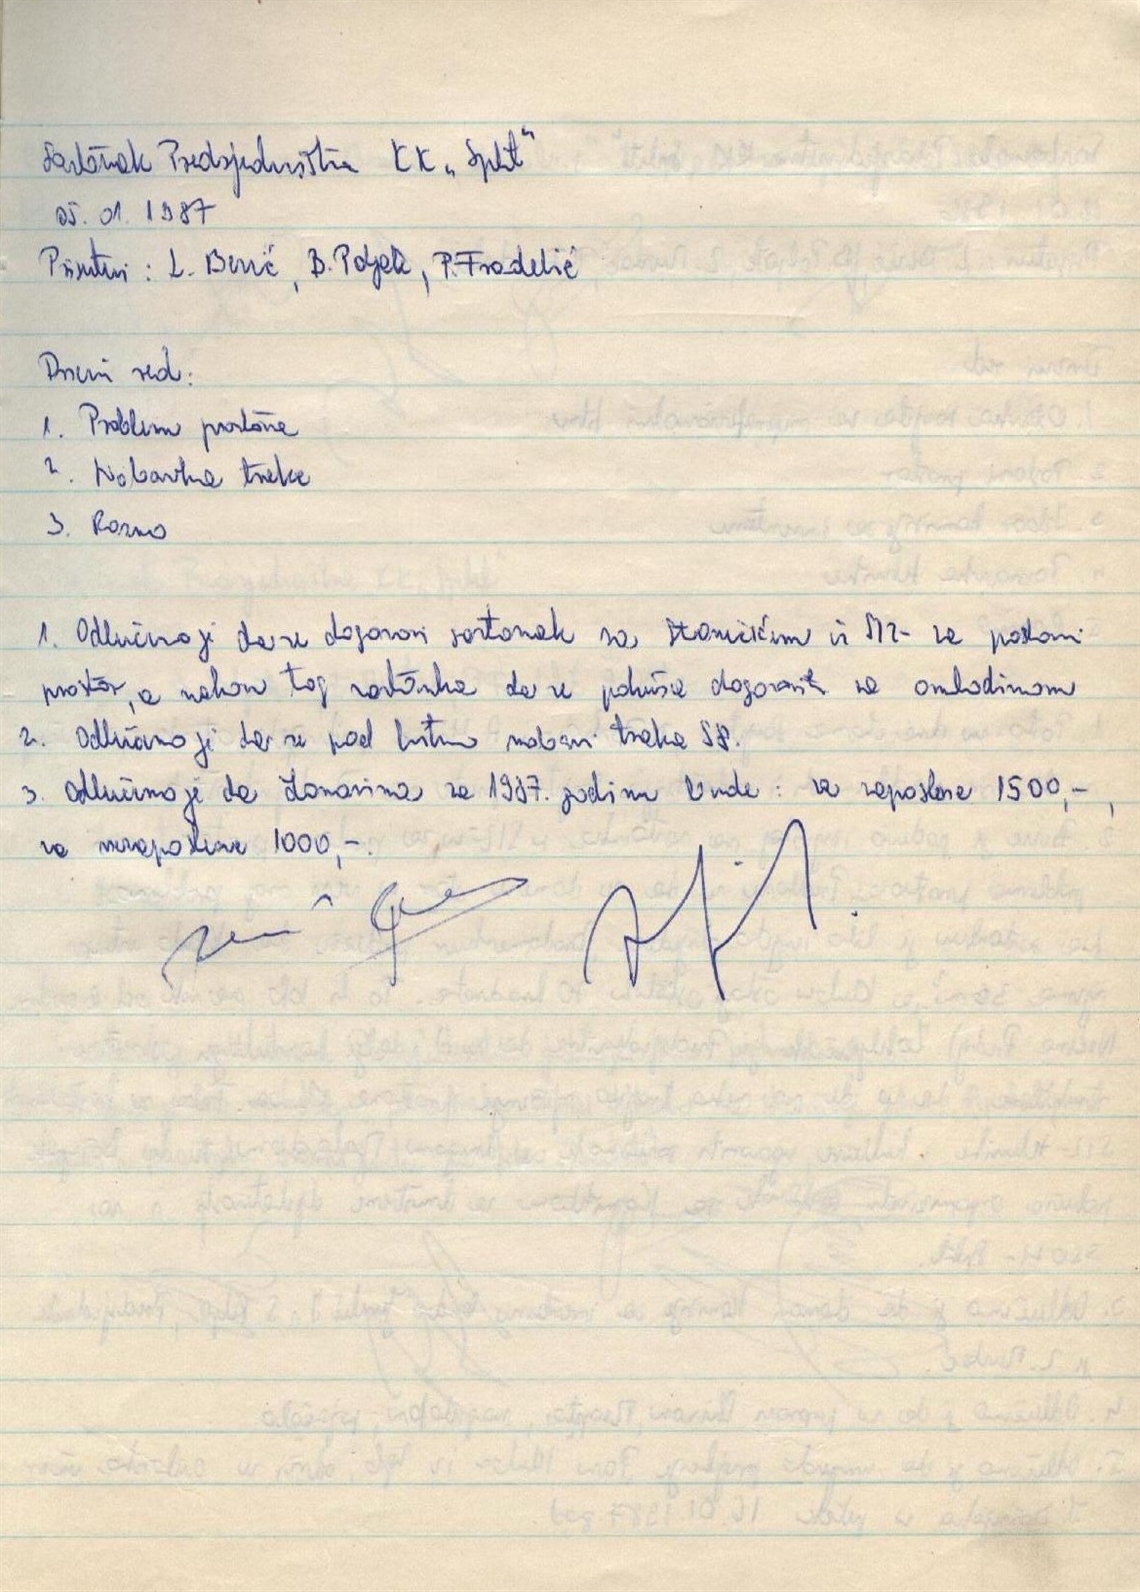 Sastanak Predsjedništva KK „Split“
05. 01. 1987
Prisutni: L. Berić, B. Poljak, P. Fradelić
Dnevni red:
1. Problem prostora
2. Nabavka traka
3. Razno
1. Odlučeno je da se dogovori sastanak sa iz MZ- za poslovni
prostor, a nakon tog sastanka da se pokuša dogovoriti sa omladinom
2. Odlučeno je da se pod hitno nabavi traka S8.
3. Odlučeno je da članarina za 1987. godinu bude: za zaposlene 1500,-,
za nezaposlene 1000,-.